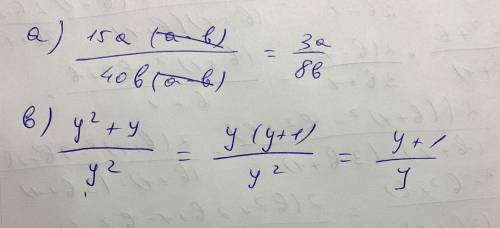 а) 15a (a-b) / 40b(a-b) = 3a / 8b
в) y² + y / y² = y (y+1) / y² = y+1 / y